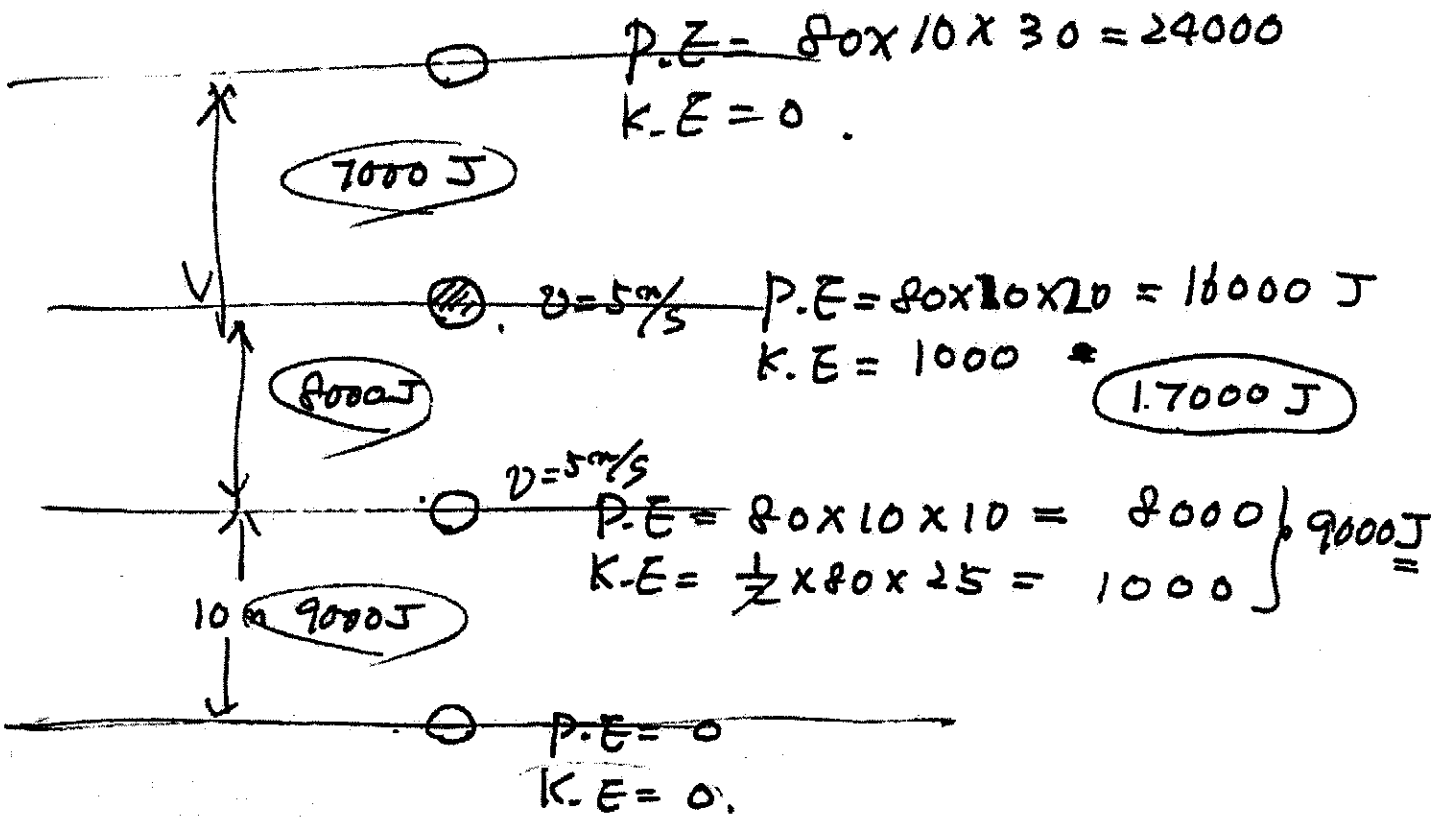 P.E = 80 x 10 x 30 = 24000
K.E = 0 .
7000 J
v = 5 m/s P.E = 80x10x20 = 16000 J
K.E = 1000
1.7000 J
8000J
v = 5 m/s
P.E = 80 x 10 x 10 = 8000
K.E = 1/2 x 80 x 25 = 1000 } 9000J
10 m 9000J
P.E = 0
K.E = 0.